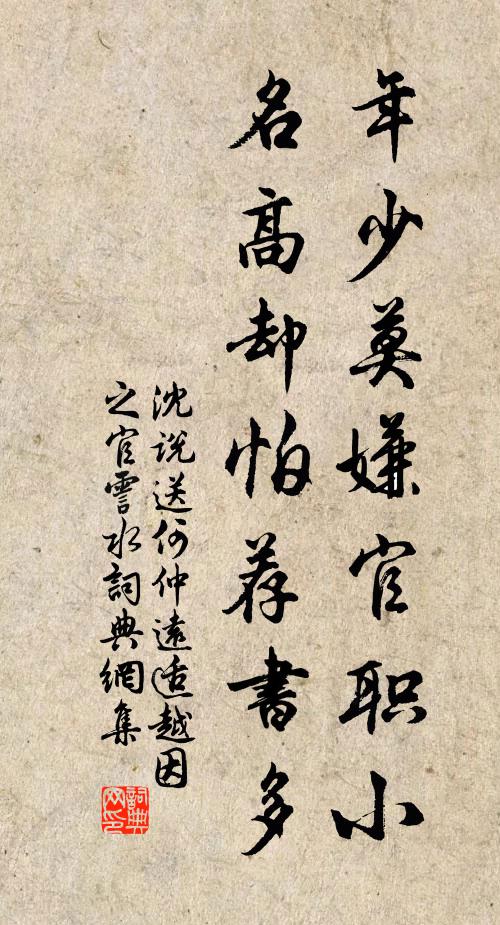 年少莫嫌官职小
名高却怕荐書多
沈说送何仲遠适越因
之官霅水詞典網集
詞典网印